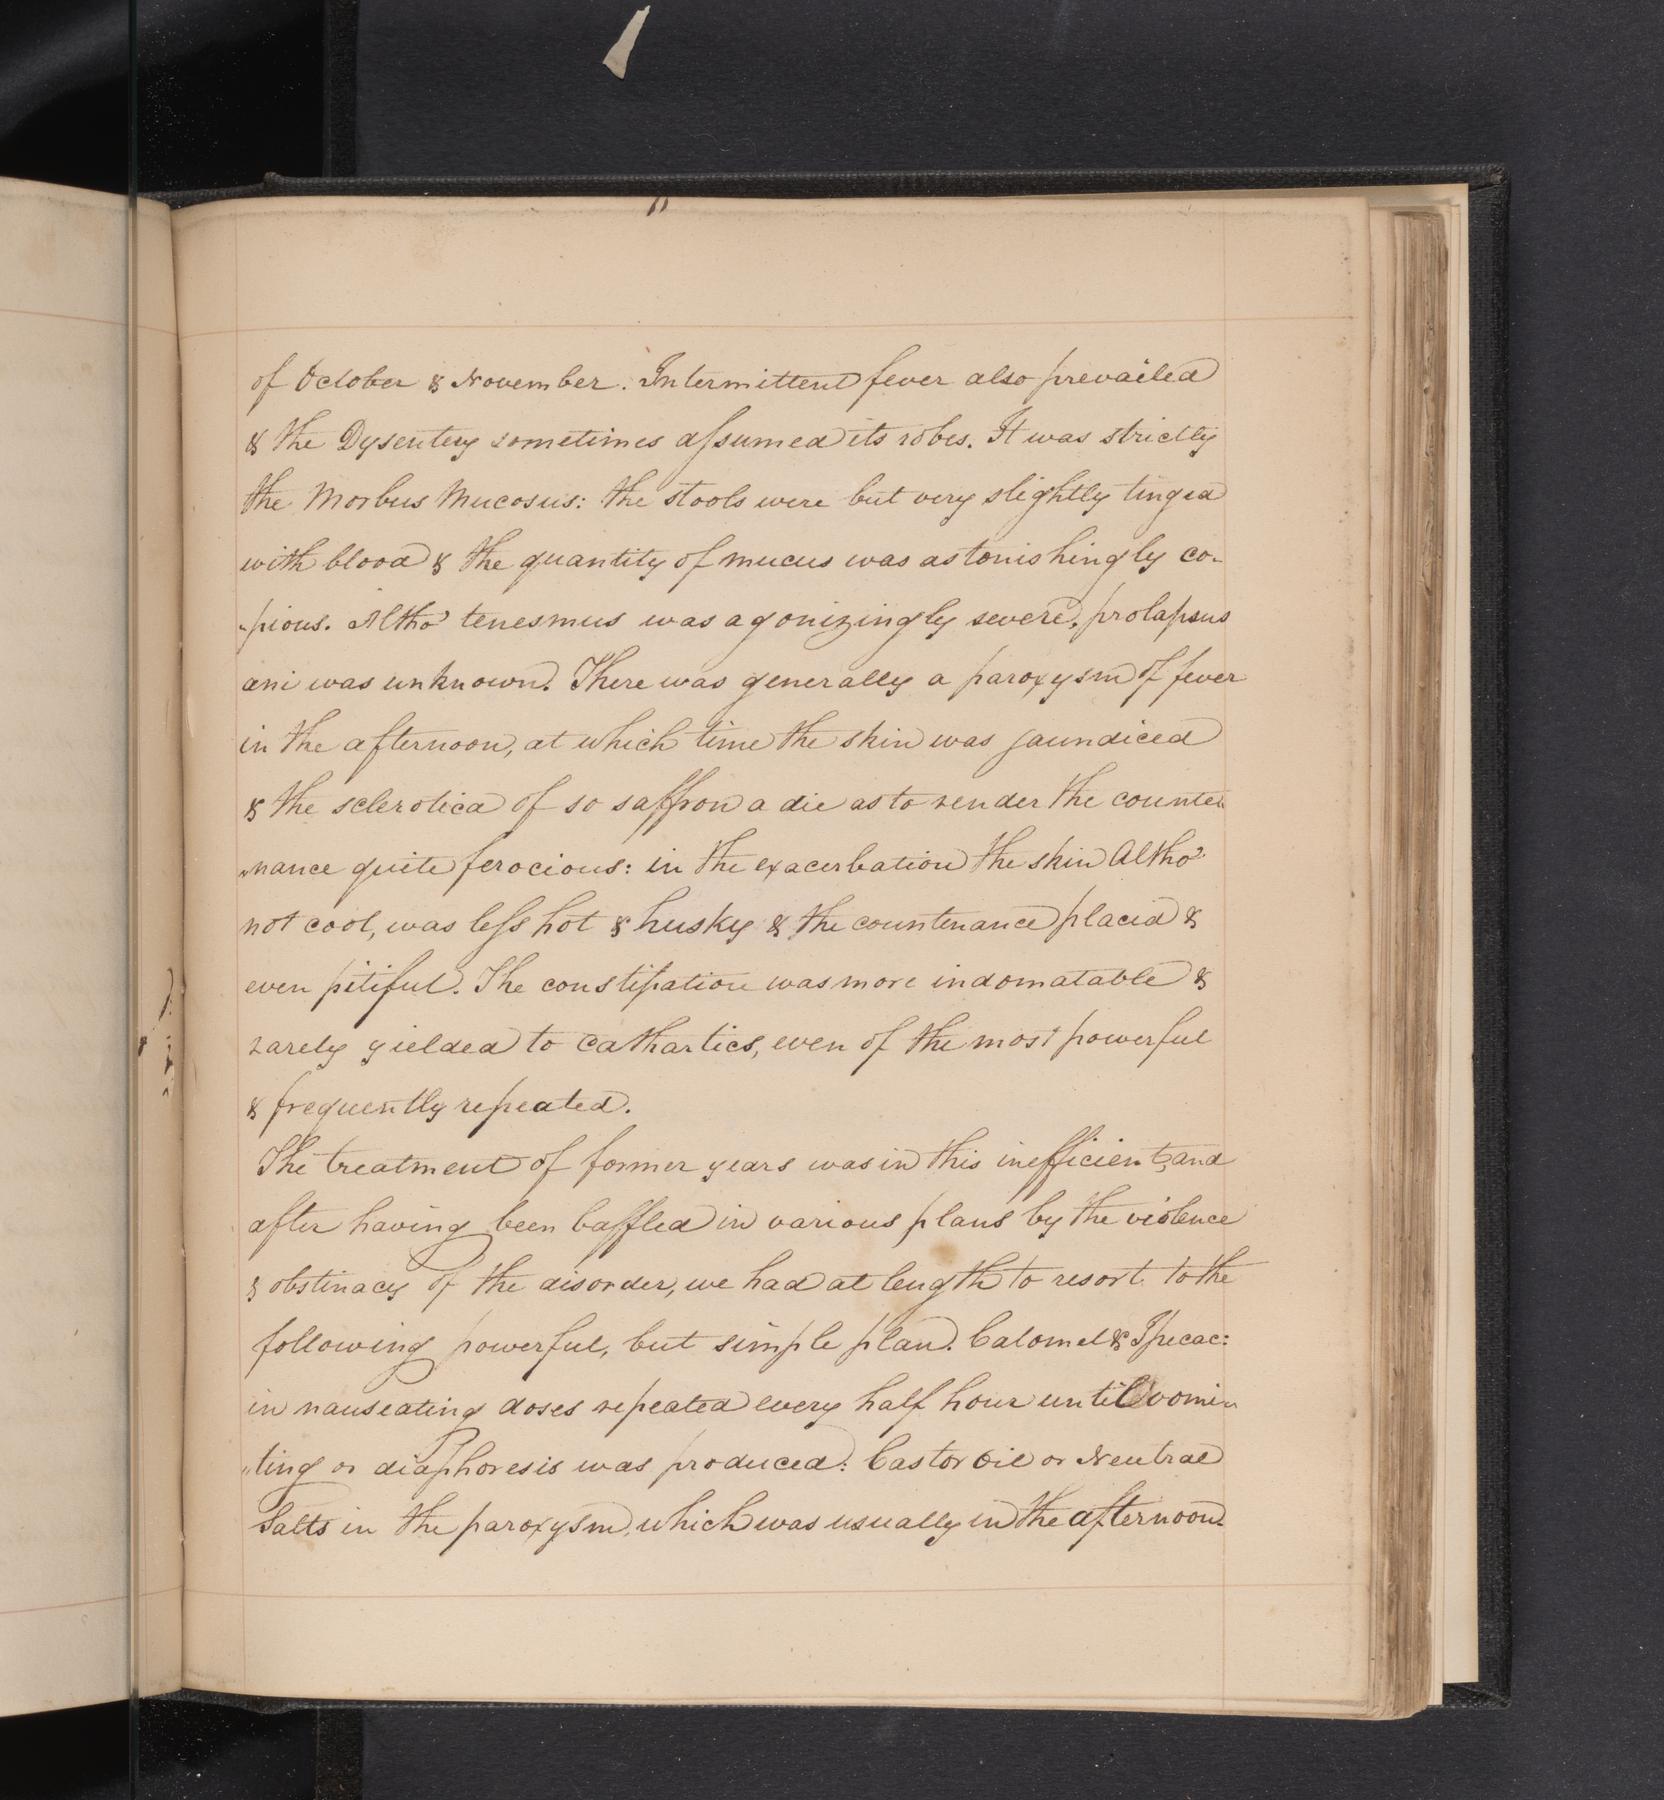 of October & November. Intermittent fever also prevailed
& the Dysentery sometimes assumed its robes. It was strictly
the Morbus Mucosus: the stools were but very slightly tinged
with blood & the quantity of mucus was astonishingly co-
"pious. Altho' tenesmus was agonizingly severe, prolapsus
ani was unknown. There was generally a paroxysm of fever
in the afternoon, at which time the skin was jaundiced
& the sclerotica of so saffron a die as to render the counte"
"nance quite ferocious: in the exacerbation the skin Altho'
not cool, was less hot & husky & the countenance placid &
even pitiful. The constipation was more indomatable &
rarely yielded to cathartics, even of the most powerful
& frequently repeated.
The treatment of former years was in this inefficient, and
after having been baffled in various plans by the violence
& obstinacy of the disorder, we had at length to resort to the
following powerful, but simple plan. Calomel & Ipecac:
in nauseating doses repeated every half hour until vomi"
"ting or diaphoresis was produced: Castor Oil or Neutral
Salts in the paroxysm, which was usually in the afternoon.